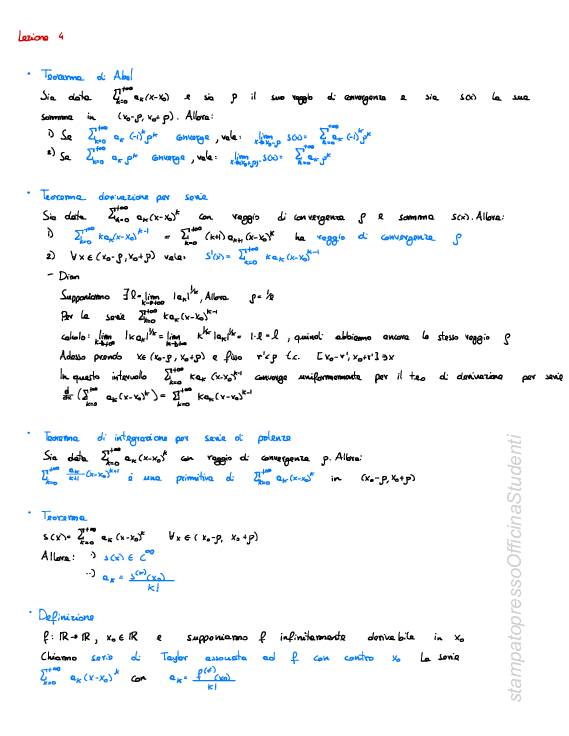 Lezione 4
• Teorema di Abel
Sia data ∑_{k=0}^{+∞} a_k(x-x_0) e sia ρ il suo raggio di convergenza e sia s(x) la sua
somma in (x_0-ρ, x_0+ρ). Allora:
1) Se ∑_{k=0}^{+∞} a_k (-1)^k ρ^k converge, vale: lim_{x→x_0-ρ} s(x) = ∑_{k=0}^{+∞} a_k (-1)^k ρ^k
2) Se ∑_{k=0}^{+∞} a_k ρ^k converge, vale: lim_{x→(x_0+ρ)} s(x) = ∑_{k=0}^{+∞} a_k ρ^k
• Teorema derivazione per serie
Sia data ∑_{k=0}^{+∞} a_k(x-x_0)^k con raggio di convergenza ρ e somma s(x). Allora:
1) ∑_{k=0}^{+∞} k a_k(x-x_0)^{k-1} = ∑_{k=0}^{+∞} (k+1) a_{k+1} (x-x_0)^k ha raggio di convergenza ρ
2) ∀x∈(x_0-ρ, x_0+ρ) vale: s'(x) = ∑_{k=0}^{+∞} k a_k (x-x_0)^{k-1}
- Dim
Supponiamo ∃ l = lim_{k→+∞} |a_k|^{1/k}, Allora ρ = 1/l
Per la serie ∑_{k=0}^{+∞} k a_k (x-x_0)^{k-1}
calcolo: lim_{k→+∞} |k a_k|^{1/k} = lim_{k→+∞} k^{1/k} |a_k|^{1/k} = 1·l = l, quindi abbiamo ancora lo stesso raggio ρ
Adesso prendo x∈(x_0-ρ, x_0+ρ) e fisso r'<ρ t.c. [x_0-r', x_0+r'] ∋ x
In questo intervallo ∑_{k=0}^{+∞} k a_k (x-x_0)^{k-1} converge uniformemente per il teo di derivazione per serie
d/dx (∑_{k=0}^{+∞} a_k (x-x_0)^k) = ∑_{k=0}^{+∞} k a_k (x-x_0)^{k-1}
• Teorema di integrazione per serie di potenze
Sia data ∑_{k=0}^{+∞} a_k (x-x_0)^k con raggio di convergenza ρ. Allora:
∑_{k=0}^{+∞} a_k/(k+1) (x-x_0)^{k+1} è una primitiva di ∑_{k=0}^{+∞} a_k (x-x_0)^k in (x_0-ρ, x_0+ρ)
• Teorema
s(x) = ∑_{k=0}^{+∞} a_k (x-x_0)^k ∀x∈(x_0-ρ, x_0+ρ)
Allora: ·) s(x) ∈ C^∞
··) a_k = s^{(k)}(x_0)/k!
• Definizione
f: ℝ→ℝ, x_0∈ℝ e supponiamo f infinitamente derivabile in x_0
Chiamo serie di Taylor associata ad f con centro x_0 la serie
∑_{k=0}^{+∞} a_k (x-x_0)^k con a_k = f^{(k)}(x_0)/k!
stampatopressoOfficinaStudenti